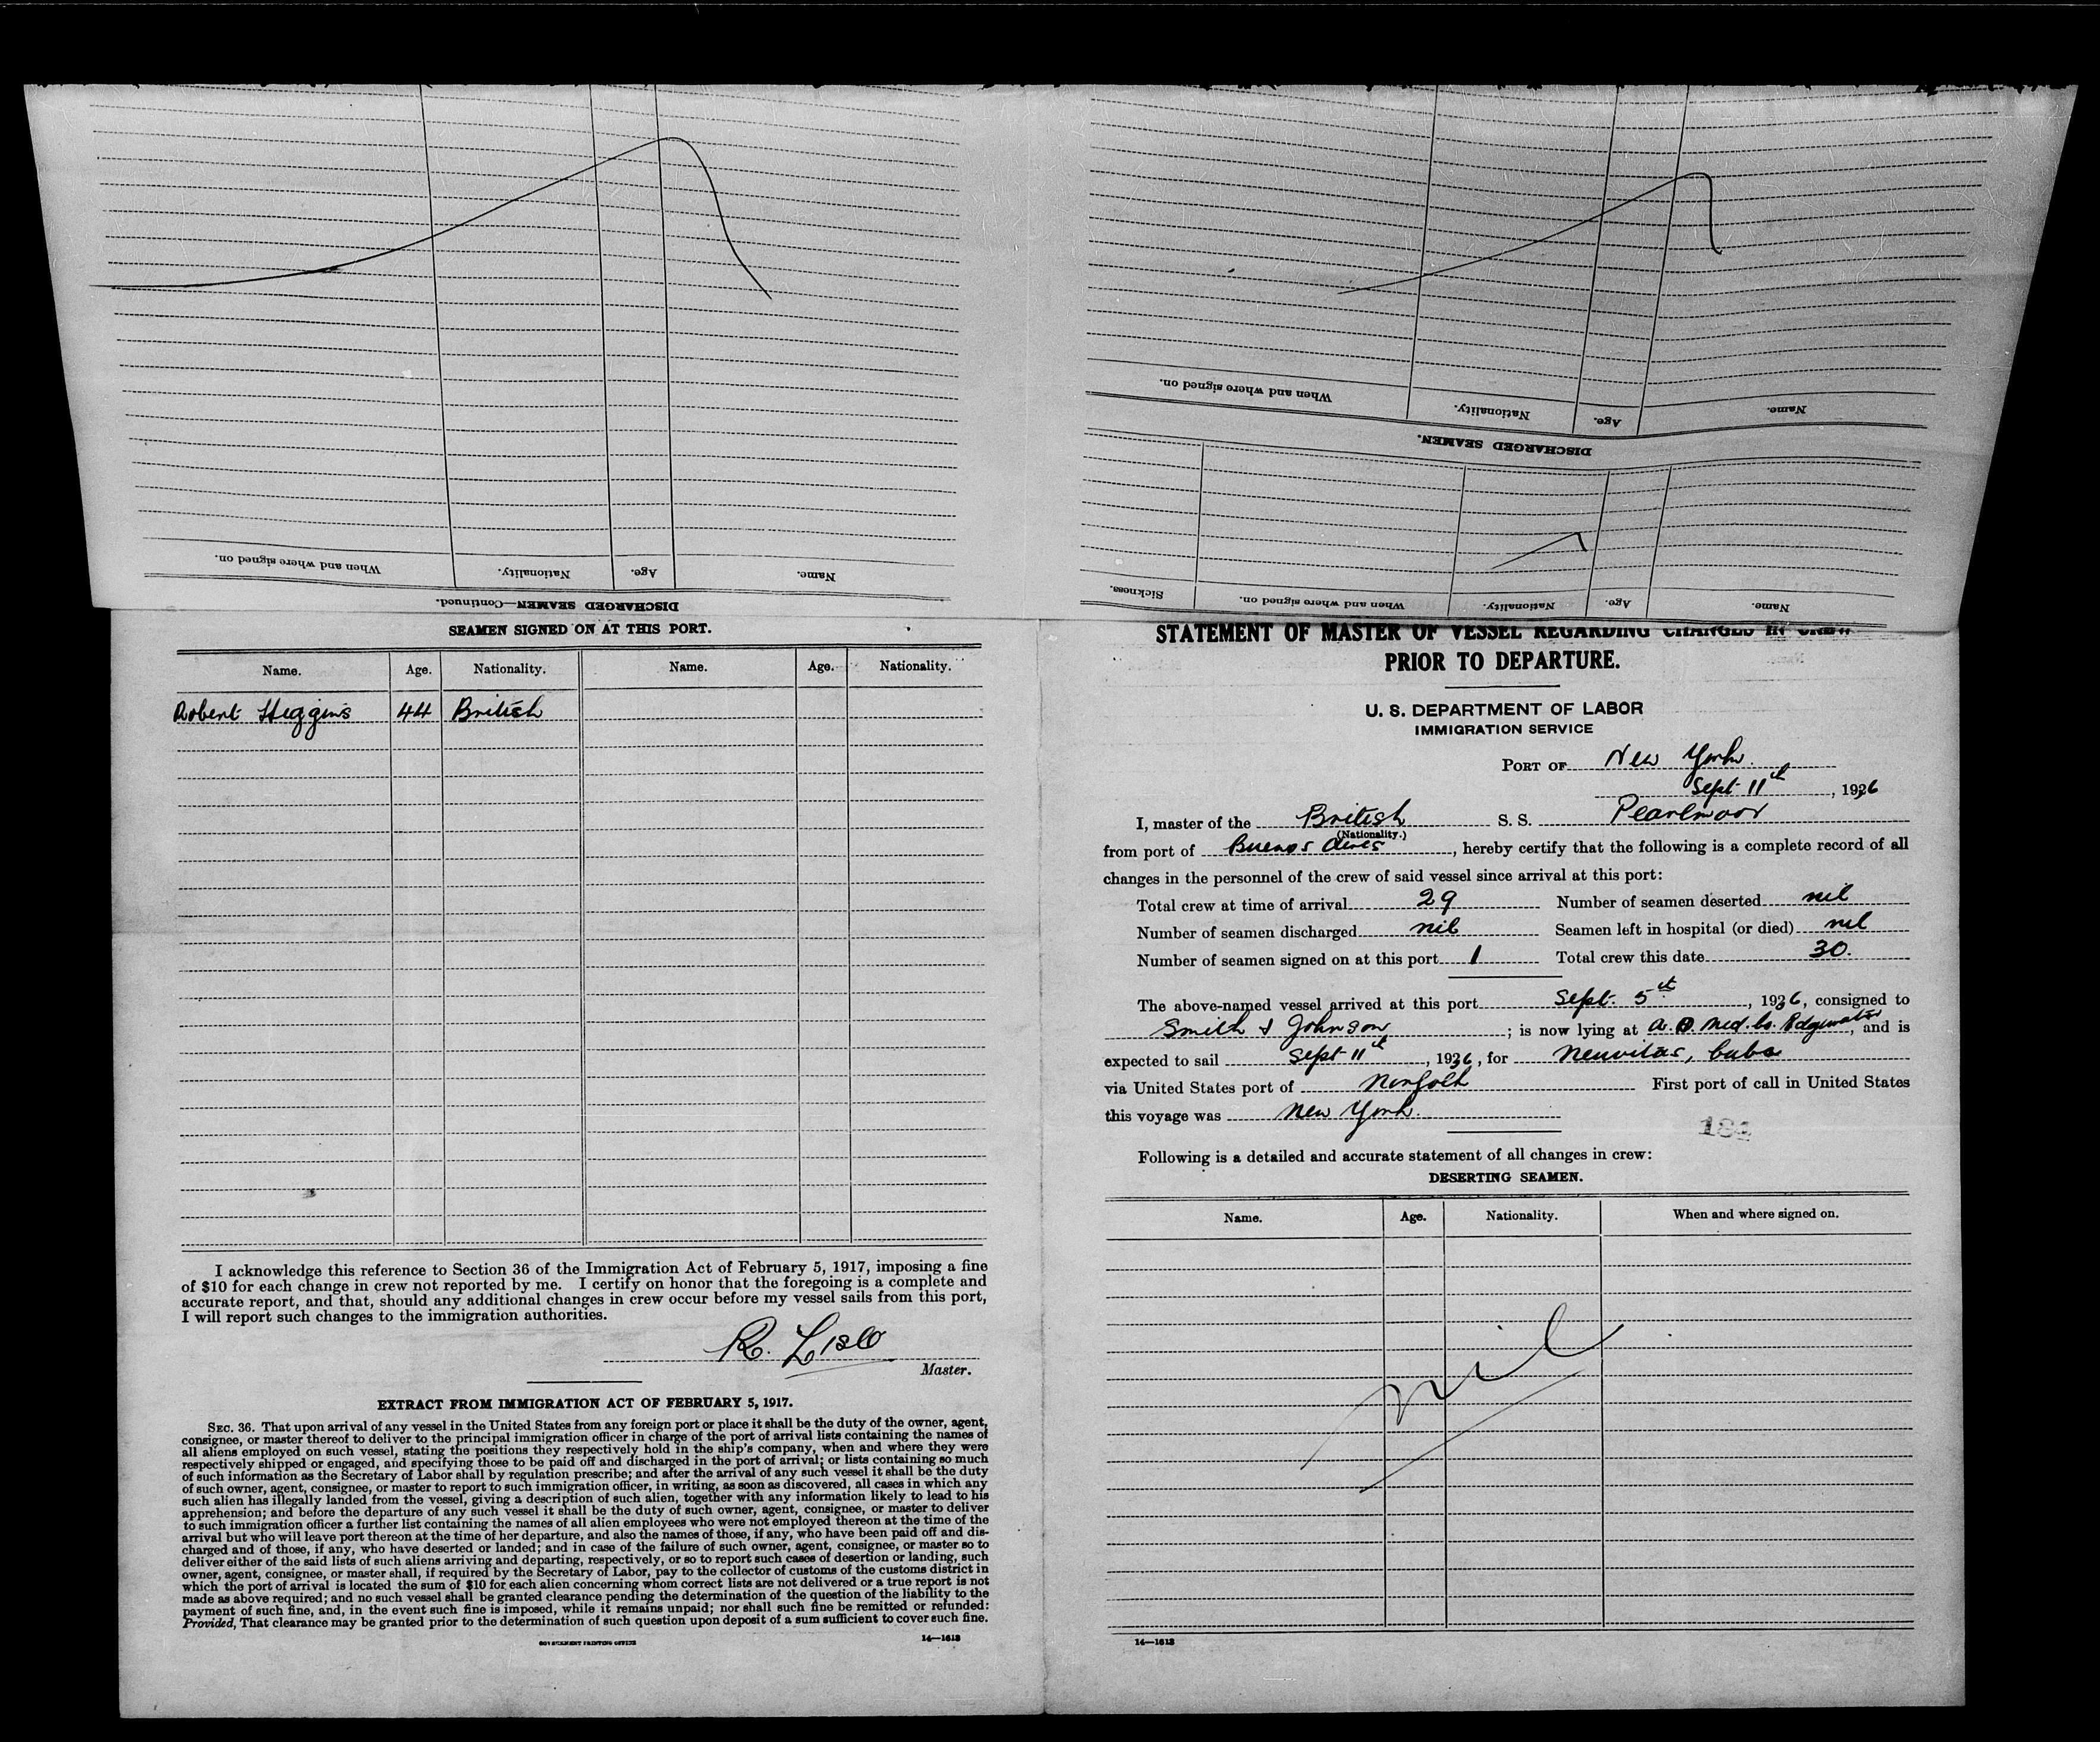 When and where signed on.
Nationality.
Age.
Name.
DISCHARGED SEAMEN—Continued.
When and where signed on.
Nationality.
Age.
Name.
DISCHARGED SEAMEN.
Sickness.
When and where signed on.
Nationality.
Age.
Name.
SEAMEN SIGNED ON AT THIS PORT.
Name. Age. Nationality. Name. Age. Nationality.
Robert Heggins 44 British
I acknowledge this reference to Section 36 of the Immigration Act of February 5, 1917, imposing a fine
of $10 for each change in crew not reported by me. I certify on honor that the foregoing is a complete and
accurate report, and that, should any additional changes in crew occur before my vessel sails from this port,
I will report such changes to the immigration authorities.
R. Lisle
Master.
EXTRACT FROM IMMIGRATION ACT OF FEBRUARY 5, 1917.
SEC. 36. That upon arrival of any vessel in the United States from any foreign port or place it shall be the duty of the owner, agent,
consignee, or master thereof to deliver to the principal immigration officer in charge of the port of arrival lists containing the names of
all aliens employed on such vessel, stating the positions they respectively hold in the ship's company, when and where they were
respectively shipped or engaged, and specifying those to be paid off and discharged in the port of arrival; or lists containing so much
of such information as the Secretary of Labor shall by regulation prescribe; and after the arrival of any such vessel it shall be the duty
of such owner, agent, consignee, or master to report to such immigration officer, in writing, as soon as discovered, all cases in which any
such alien has illegally landed from the vessel, giving a description of such alien, together with any information likely to lead to his
apprehension; and before the departure of any such vessel it shall be the duty of such owner, agent, consignee, or master to deliver
to such immigration officer a further list containing the names of all alien employees who were not employed thereon at the time of the
arrival but who will leave port thereon at the time of her departure, and also the names of those, if any, who have been paid off and dis-
charged and of those, if any, who have deserted or landed; and in case of the failure of such owner, agent, consignee, or master so to
deliver either of the said lists of such aliens arriving and departing, respectively, or so to report such cases of desertion or landing, such
owner, agent, consignee, or master shall, if required by the Secretary of Labor, pay to the collector of customs of the customs district in
which the port of arrival is located the sum of $10 for each alien concerning whom correct lists are not delivered or a true report is not
made as above required; and no such vessel shall be granted clearance pending the determination of the question of the liability to the
payment of such fine, and, in the event such fine is imposed, while it remains unpaid; nor shall such fine be remitted or refunded:
Provided, That clearance may be granted prior to the determination of such question upon deposit of a sum sufficient to cover such fine.
GOVERNMENT PRINTING OFFICE 14—1613
STATEMENT OF MASTER OF VESSEL REGARDING CHANGES IN CREW
PRIOR TO DEPARTURE.
U. S. DEPARTMENT OF LABOR
IMMIGRATION SERVICE
PORT OF New York.
Sept 11th, 1936
I, master of the British S. S. Pearlmoor
(Nationality.)
from port of Buenos Aires, hereby certify that the following is a complete record of all
changes in the personnel of the crew of said vessel since arrival at this port:
Total crew at time of arrival 29 Number of seamen deserted nil
Number of seamen discharged nil Seamen left in hospital (or died) nil
Number of seamen signed on at this port 1 Total crew this date 30.
The above-named vessel arrived at this port Sept. 5th, 1936, consigned to
Smith & Johnson; is now lying at Edgewater, and is
expected to sail Sept 11th, 1936, for Neuvitas, Cuba
via United States port of Norfolk First port of call in United States
this voyage was New York.
Following is a detailed and accurate statement of all changes in crew:
DESERTING SEAMEN.
Name. Age. Nationality. When and where signed on.
nil
14—1613